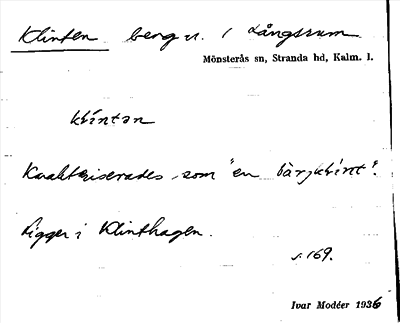 Klinten berg n. i Långsrum
Mönsterås sn, Stranda hd, Kalm. l.
klíntən
Karakteriserades som "en bärjklint".
Ligger i Klinthagen.
s. 169.
Ivar Modéer 1936